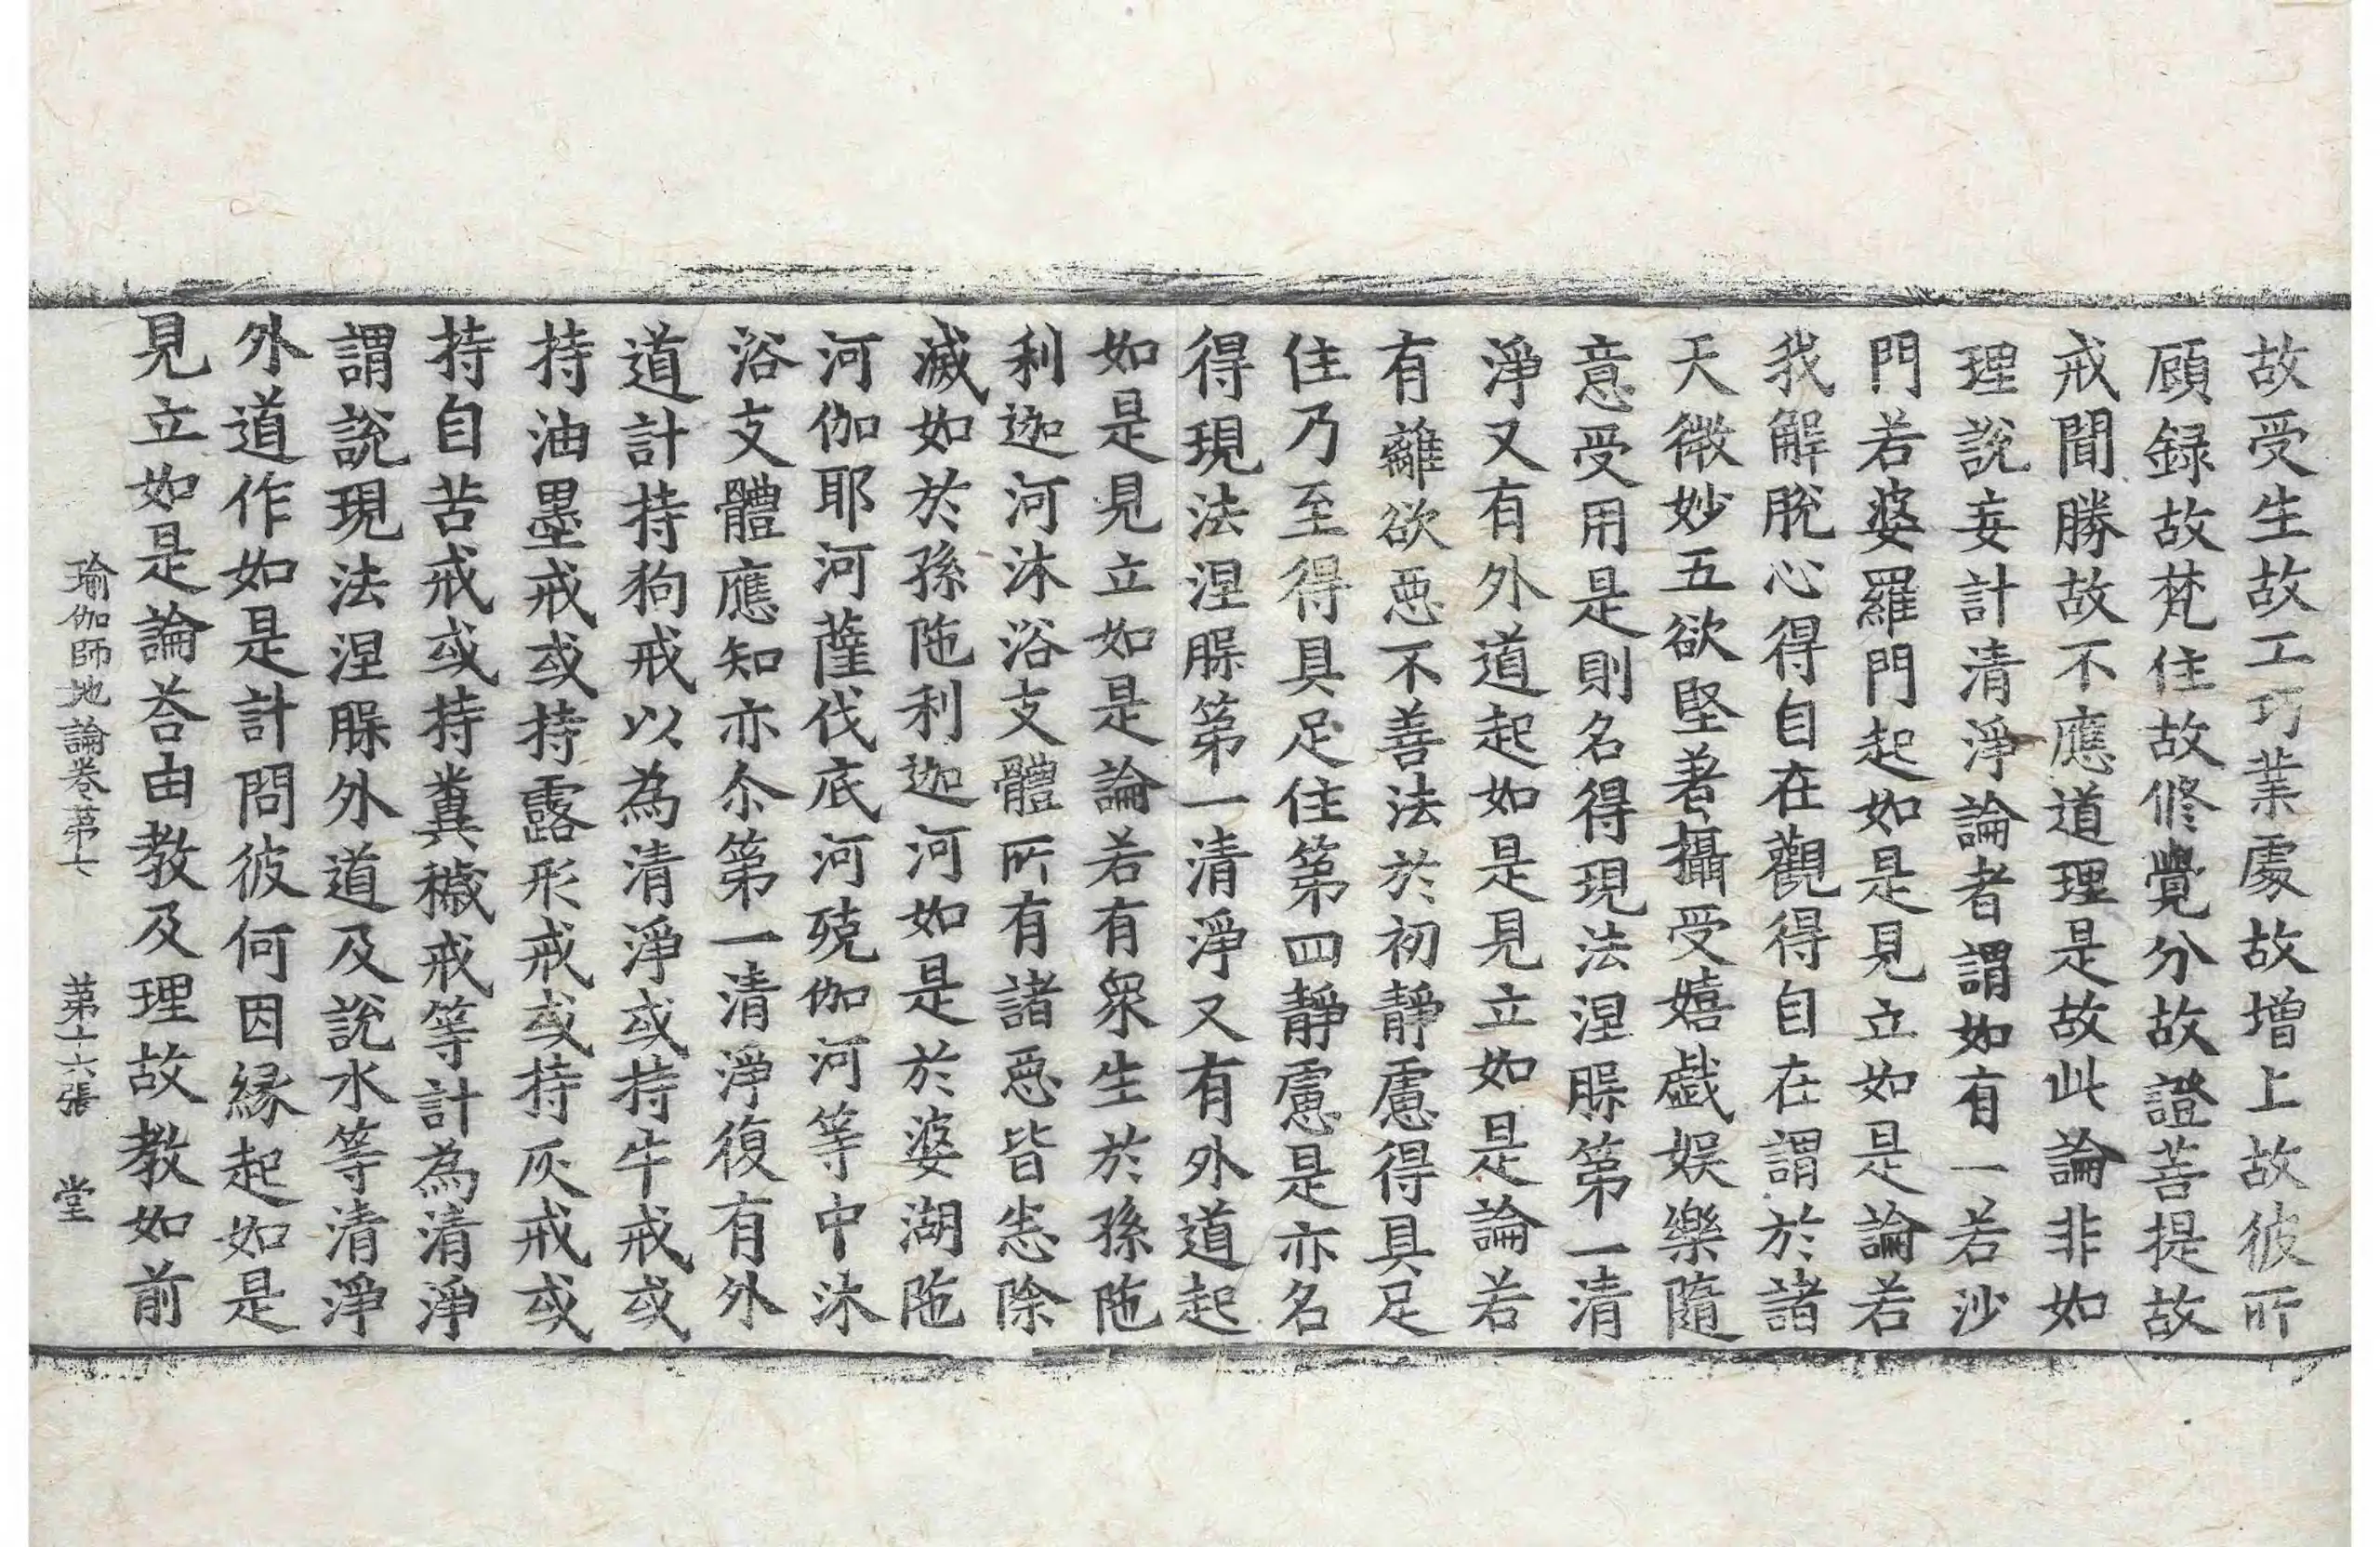 故受生故工巧業處故增上故彼所
顧録故梵住故修覺分故證菩提故
戒聞勝故不應道理是故此論非如
理說妄計清淨論者謂如有一若沙
門若婆羅門起如是見立如是論若
我解脫心得自在觀得自在謂於諸
天微妙五欲堅著攝受嬉戲娛樂隨
意受用是則名得現法涅槃第一清
淨又有外道起如是見立如是論若
有離欲惡不善法於初靜慮得具足
住乃至得具足住第四靜慮是亦名
得現法涅槃第一清淨又有外道起
如是見立如是論若有眾生於孫陁
利迦河沐浴支體所有諸惡皆悉除
滅如於孫陁利迦河如是於婆湖陁
河伽耶河薩伐底河殑伽河等中沐
浴支體應知亦尒第一清淨復有外
道計持狗戒以為清淨或持牛戒或
持油墨戒或持露形戒或持灰戒或
持自苦戒或持糞穢戒等計為清淨
謂說現法涅槃外道及說水等清淨
外道作如是計問彼何因緣起如是
見立如是論荅由教及理故教如前
瑜伽師地論卷第七 第十六張 堂